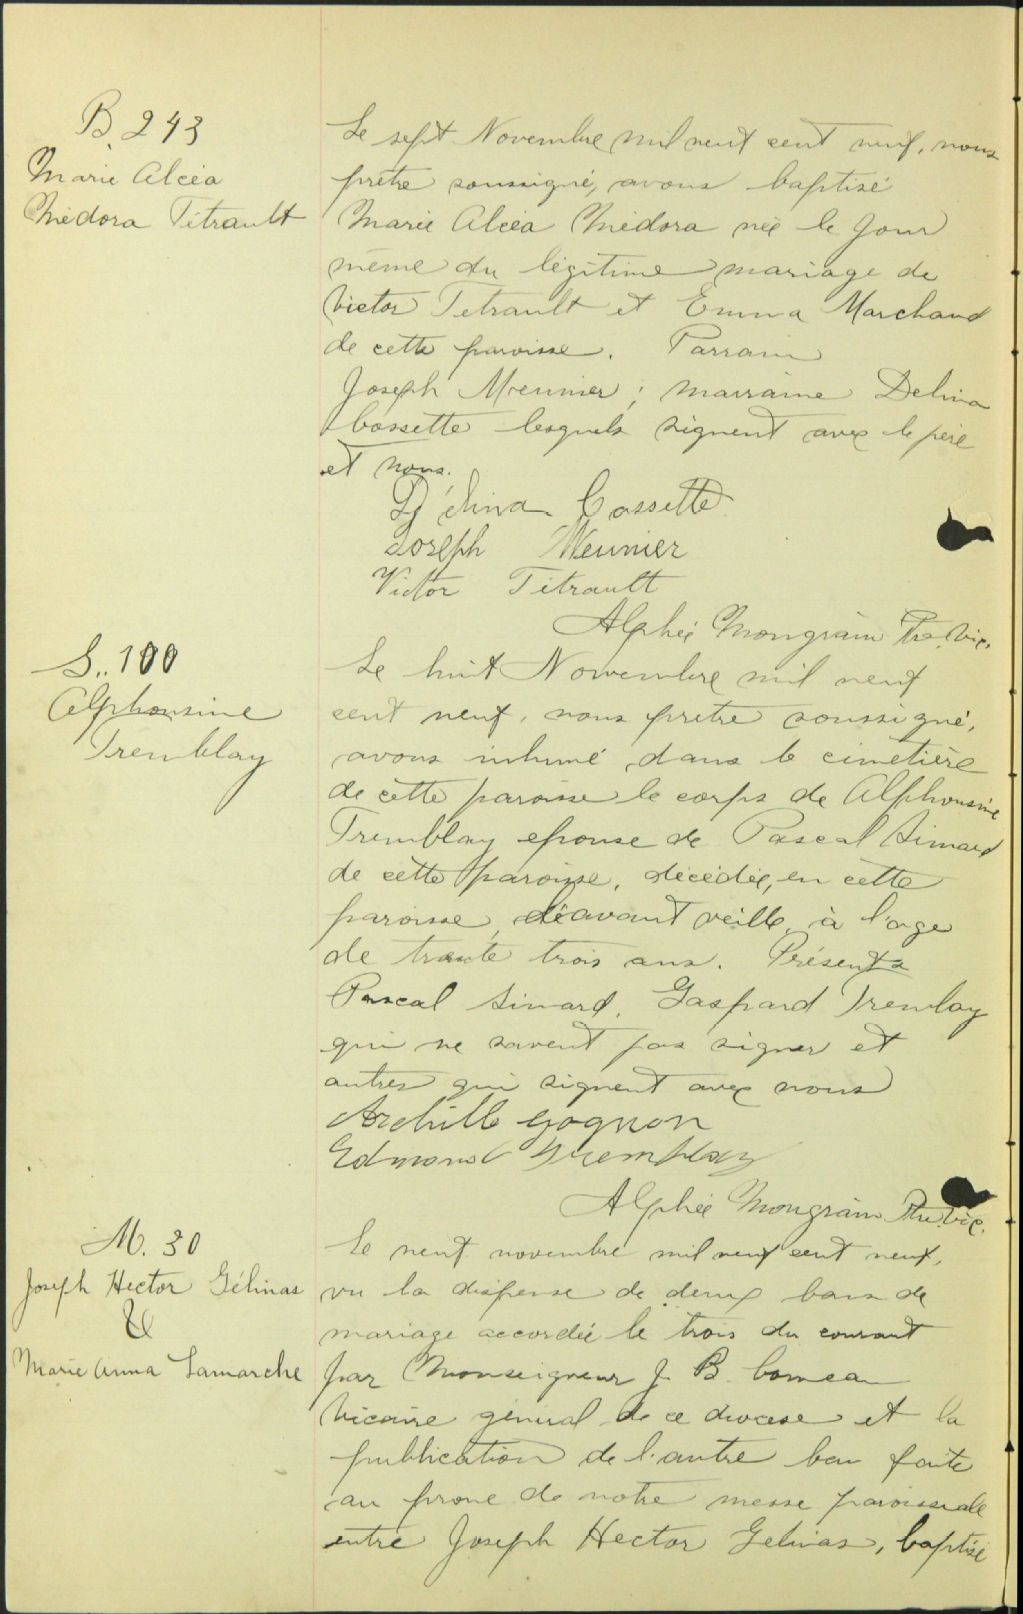 B. 243
Marie Alcéa
Médora Tétrault
Le sept Novembre mil neuf cent neuf, nous
prêtre soussigné, avons baptisé
Marie Alcéa Médora née le jour
même du légitime mariage de
Victor Tetrault et Emma Marchand
de cette paroisse. Parrain
Joseph Meunier ; marraine Delina
Cossette lesquels signent avec le père
et nous.
Délina Cossette
Joseph Meunier
Victor Tétrault
Alphée Mongrain Ptre. Vic.
S. 100
Alphonsine
Tremblay
Le huit Novembre mil neuf
cent neuf, nous prêtre soussigné,
avons inhumé dans le cimetière
de cette paroisse le corps de Alphonsine
Tremblay epouse de Pascal Simard
de cette paroisse, décédée, en cette
paroisse, avant veille, à l'age
de trente trois ans. Présents
Pascal Simard, Gaspard Tremlay
qui ne savent pas signer et
autres qui signent avec nous
Archille gagnon
Edmond Tremblay
Alphée Mongrain Ptre. Vic.
M. 30
Joseph Hector Gélinas
&
Marie Anna Lamarche
Le neuf novembre mil neuf cent neuf,
vu la dispense de deux bans de
mariage accordée le trois du courant
par Monseigneur J. B. Comeau
Vicaire général de ce diocèse et la
publication de l'autre ban faite
au prone de notre messe paroissiale
entre Joseph Hector Gelinas, baptisé